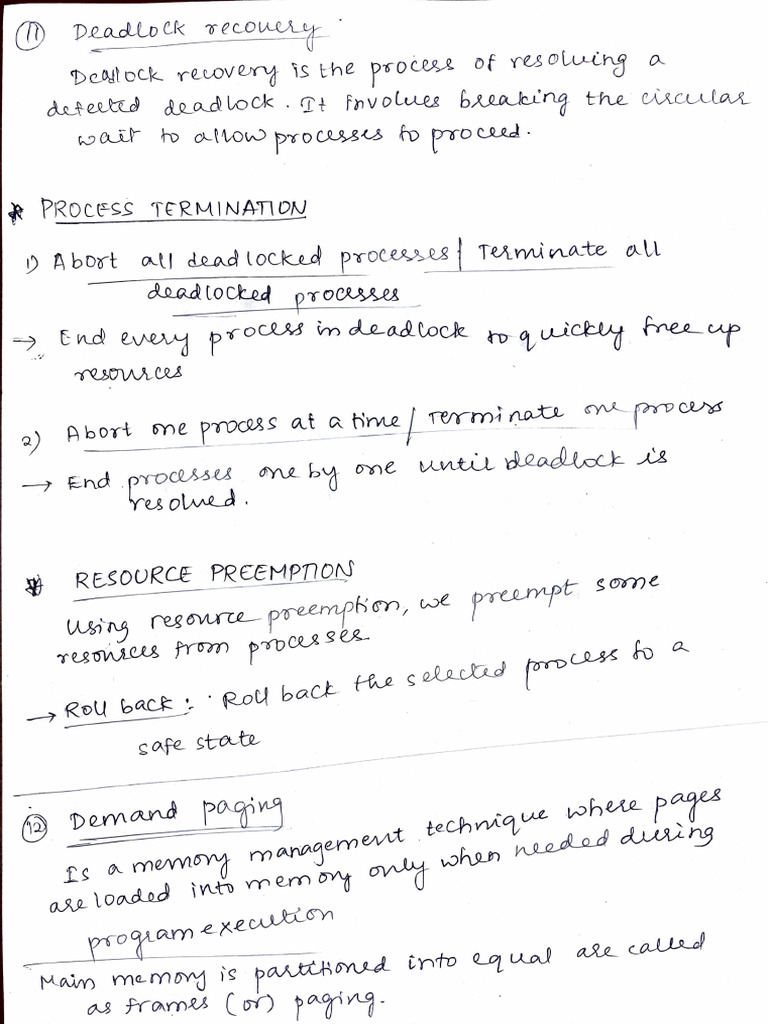 11 Deadlock recovery.
Deadlock recovery is the process of resolving a
detected deadlock. It involves breaking the circular
wait to allow processes to proceed.
* PROCESS TERMINATION
1) Abort all deadlocked processes / Terminate all
deadlocked processes
→ End every process in deadlock to quickly free up
resources
2) Abort one process at a time / Terminate one process
→ End processes one by one until deadlock is
resolved.
* RESOURCE PREEMPTION
Using resource preemption, we preempt some
resources from processes
→ Roll back : Roll back the selected process to a
safe state
12 Demand paging
Is a memory management technique where pages
are loaded into memory only when needed during
program execution
Main memory is partitioned into equal are called
as frames (or) paging.